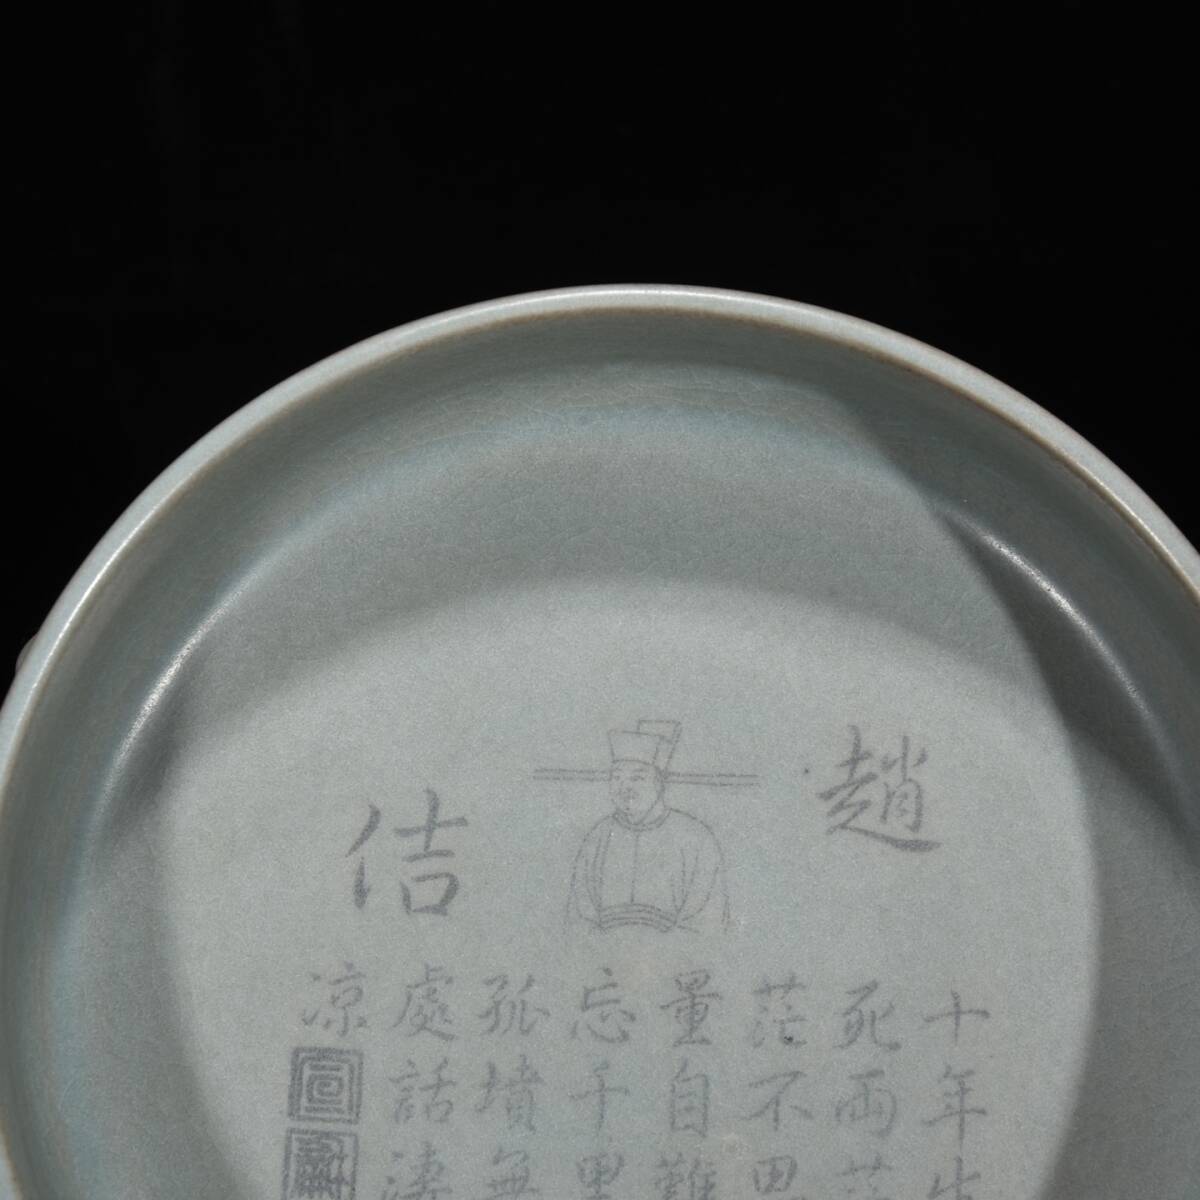 趙
佶
十年生
死兩茫
茫不思
量自難
忘千里
孤墳無
處話淒
凉
宣